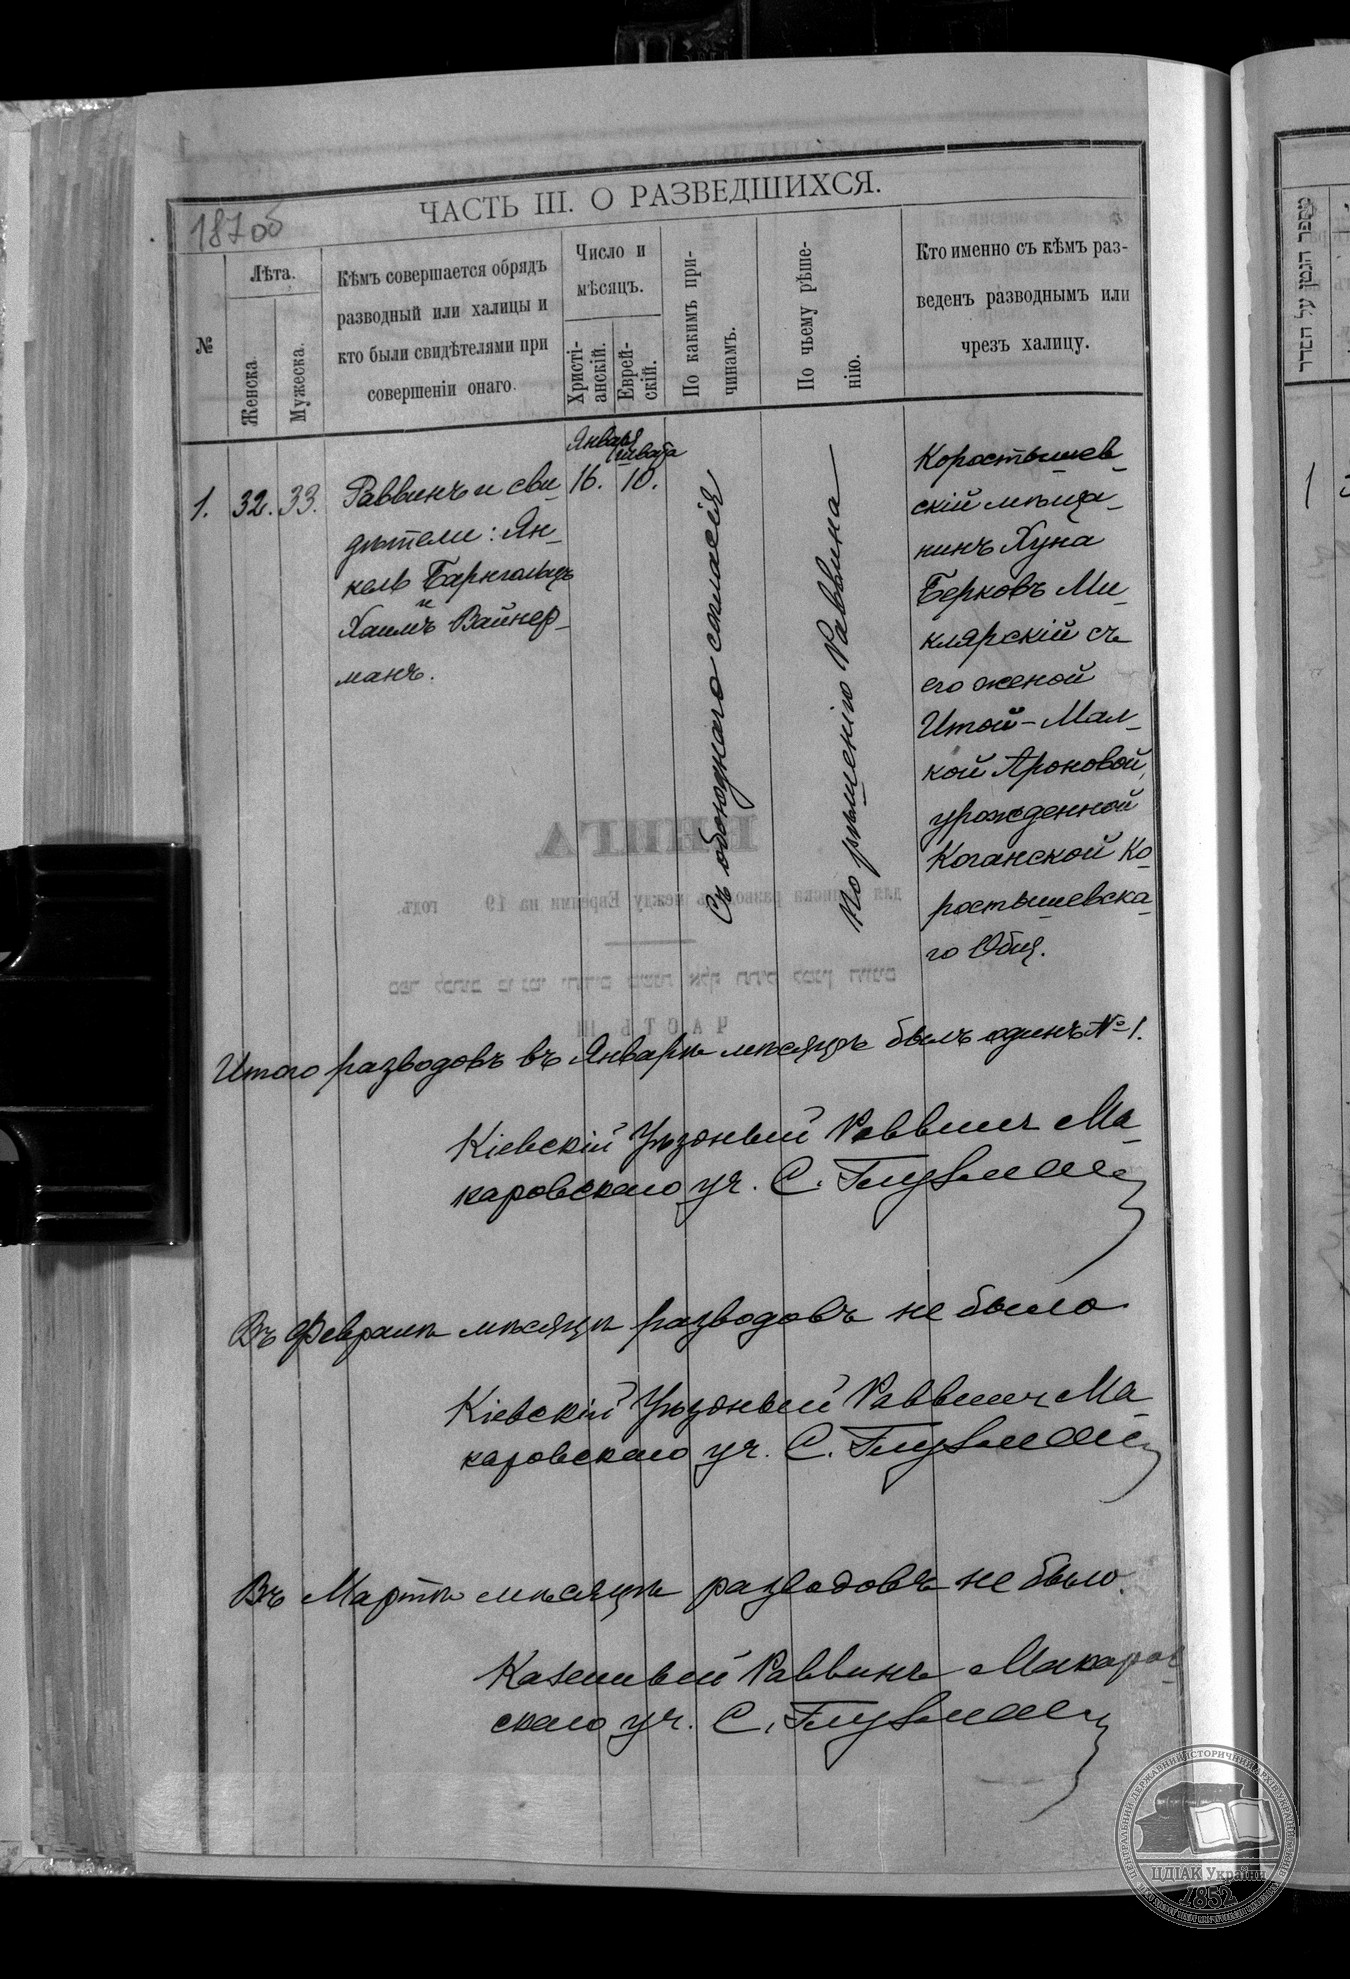 187 об
ЧАСТЬ III. О РАЗВЕДШИХСЯ.
№
Лѣта.
Женска
Мужеска.
Кѣмъ совершается обрядъ
разводный или халицы и
кто были свидѣтелями при
совершеніи онаго.
Число и
мѣсяцъ.
Христі-
анскій.
Еврей-
скій.
По какимъ при-
чинамъ.
По чьему рѣше-
нію.
Кто именно съ кѣмъ раз-
веденъ разводнымъ или
чрезъ халицу.
1. 32. 33.
Раввинъ и сви-
дѣтели: Ян-
кель Барнгольцъ
и
Хаимъ Вайнер-
манъ.
Января
16.
Швата
10.
Съ обоюднаго согласія
По рѣшенію Раввина
Коростышев-
скій мѣща-
нинъ Хуна
Берковъ Ми-
клярскій съ
его женой
Итой-Мал-
кой Ароновой,
урожденной
Коганской Ко-
ростышевска-
го Общ.
КНИГА
для записки разводовъ между Евреями на 19 годъ.
ЧАСТЬ III
Итого разводовъ въ Январѣ мѣсяцѣ былъ одинъ № 1.
Кіевскій Уѣздный Раввинъ Ма-
каровскаго уч. С. Глузман
Въ Февралѣ мѣсяцѣ разводовъ не было
Кіевскій Уѣздный Раввинъ Ма-
каровскаго уч. С. Глузман
Въ Мартѣ мѣсяцѣ разводовъ не было.
Казенный Раввинъ Макаров-
скаго уч. С. Глузман
מספר הגטין על הסדר
1
ЦЕНТРАЛЬНИЙ ДЕРЖАВНИЙ ІСТОРИЧНИЙ АРХІВ УКРАЇНИ
ЦДІАК України
1852